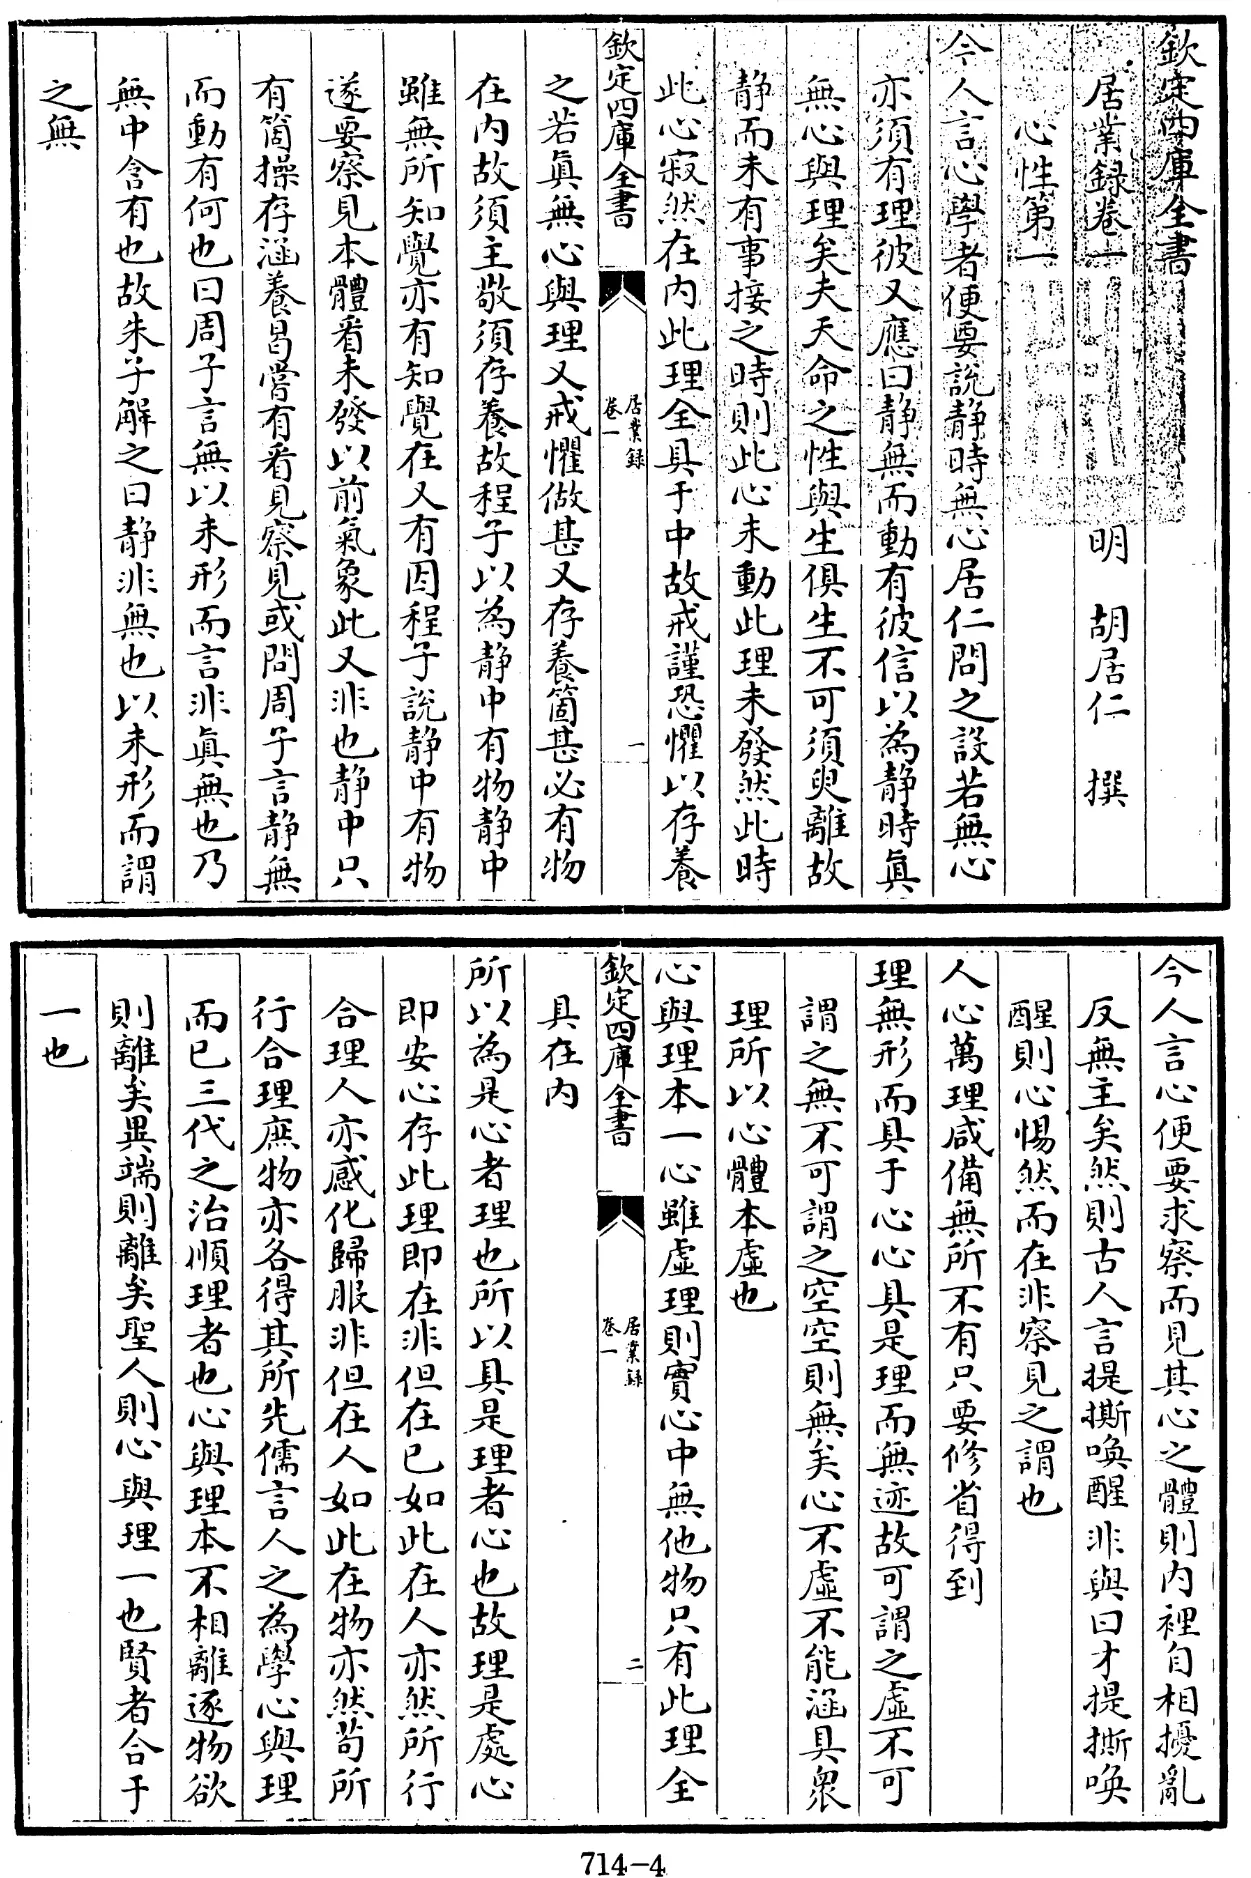 欽定四庫全書
居業録卷一
明　胡居仁　撰
心性第一
今人言心學者便要說静時無心居仁問之設若無心
亦須有理彼又應曰静無而動有彼信以為静時眞
無心與理矣夫天命之性與生俱生不可須臾離故
静而未有事接之時則此心未動此理未發然此時
此心寂然在内此理全具于中故戒謹恐懼以存養
欽定四庫全書
居業録
卷一
一
之若眞無心與理又戒懼做甚又存養箇甚必有物
在内故須主敬須存養故程子以為静中有物静中
雖無所知覺亦有知覺在又有因程子說静中有物
遂要察見本體看未發以前氣象此又非也静中只
有箇操存涵養曷嘗有看見察見或問周子言静無
而動有何也曰周子言無以未形而言非眞無也乃
無中含有也故朱子解之曰静非無也以未形而謂
之無
今人言心便要求察而見其心之體則内裡自相擾亂
反無主矣然則古人言提撕喚醒非與曰才提撕喚
醒則心惕然而在非察見之謂也
人心萬理咸備無所不有只要修省得到
理無形而具于心心具是理而無迹故可謂之虛不可
謂之無不可謂之空空則無矣心不虛不能涵具衆
理所以心體本虛也
心與理本一心雖虛理則實心中無他物只有此理全
欽定四庫全書
居業録
卷一
二
具在内
所以為是心者理也所以具是理者心也故理是處心
即安心存此理即在非但在已如此在人亦然所行
合理人亦感化歸服非但在人如此在物亦然茍所
行合理庶物亦各得其所先儒言人之為學心與理
而已三代之治順理者也心與理本不相離逐物欲
則離矣異端則離矣聖人則心與理一也賢者合于
一也
714-4